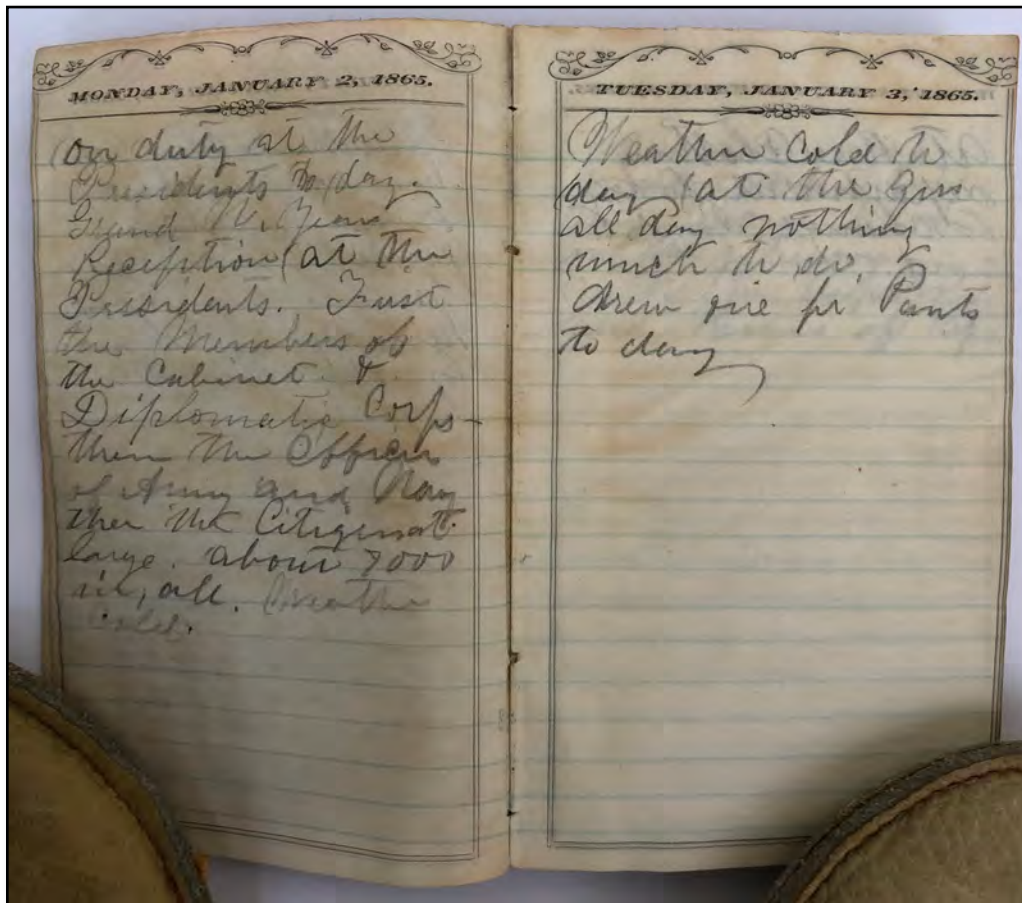 MONDAY, JANUARY 2, 1865.
on duty at the
Presidents to day.
Grand N. Years
Reception at the
Presidents. First
the Members of
the Cabinet &
Diplomatic Corps
then the Officers
of Army and Navy
then the Citizens at
large. about 7000
in, all. Weather
Cold.
TUESDAY, JANUARY 3, 1865.
Weather Cold to
day at the
all day nothing
much to do.
drew one pr Pants
to day